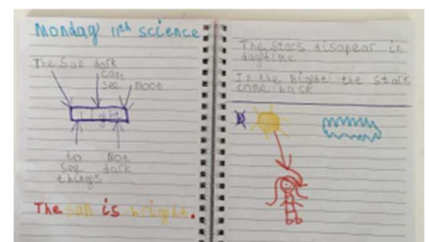 Monday 11th science
The Sun dark
can
see
Moon
light
to
see
things
Not
dark
The sun is bright.
The stars disapear in
daytime
In the night the stars
come back